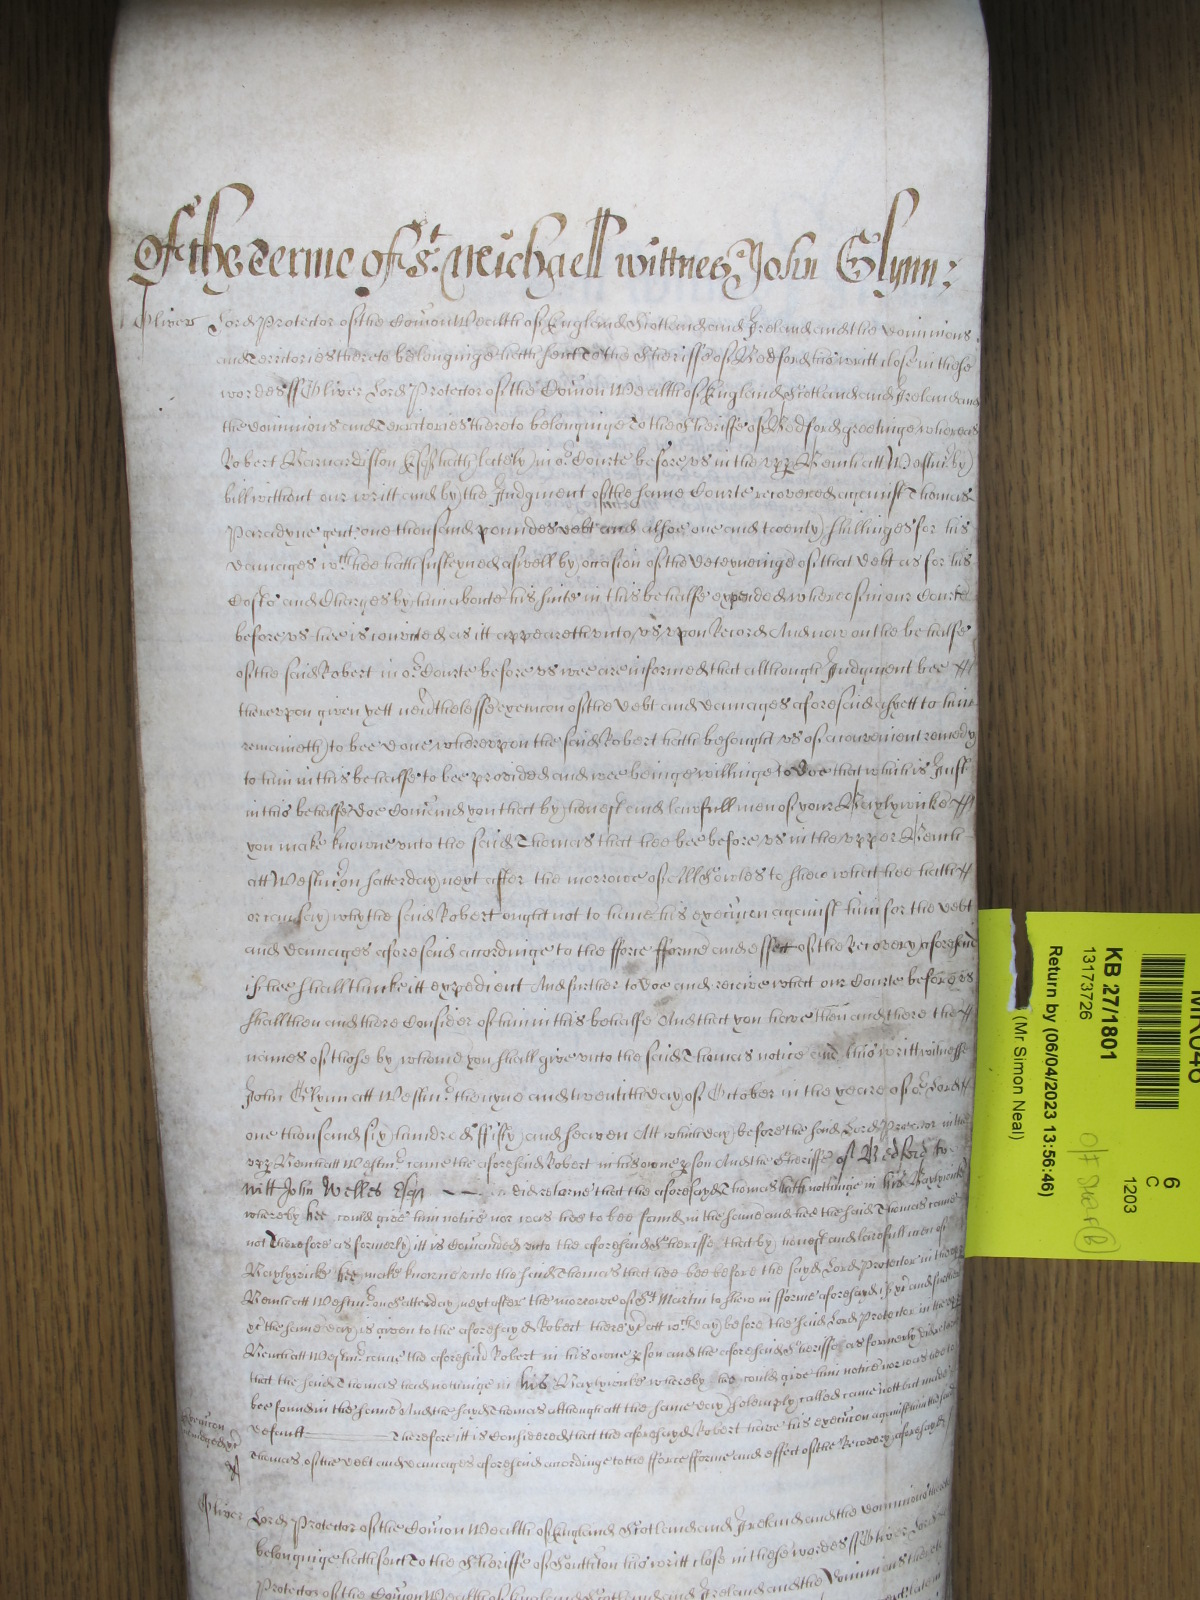 Of the Terme of St. Michaell wittnes John Glynn;
Oliver Lord Protector of the Com̃on Wealth of England Scotland and Ireland and the dominions
and Territories thereto belonginge hath sent to the Sheriffe of Bedford his writt close in these
wordes ss Oliver Lord Protector of the Com̃on Wealth of England Scotland and Ireland and
the dominions and Territories thereto belonginge To the Sheriffe of Bedford greetinge whereas
Robert Barnardiston Esqr hath lately in or Courte before us in the upp Bench att Westm by
bill without our writt and by the Judgment of the same Courte recovered against Thomas
Paradyne gent one thousand poundes debt and alsoe one and twenty shillinges for his
damages wch hee hath susteyned aswell by occasion of the deteyneinge of that debt as for his
Costs and Charges by him aboute his suite in this behalfe expended whereof in our Courte
before us hee is convicted as itt appeareth unto us upon Record And now on the behalfe
of the said Robert in or Courte before us wee are informed that although Judgment bee
thereupon given yett nevertheless execucon of the debt and damages aforesaid as yett to him
remaineth to bee done whereupon the said Robert hath besought us of a convenient remedy
to him in this behalfe to bee provided and wee beinge willinge to doe that which is Just
in this behalfe doe Com̃and you that by honest and lawfull men of your Baylywicke
you make knowne unto the said Thomas that hee bee before us in the upper Bench
att Westm on Satterday next after the morrowe of All Sowles to shew what hee hath
or can say why the said Robert ought not to have his execucon against him for the debt
and damages aforesaid accordinge to the fforce fforme and effect of the Recovery aforesaid
if hee shall thinke itt expedient And further to doe and receive what our Courte before us
shall then and there Consider of him in this behalfe And that you have then and there the
names of those by whome you shall give unto the said Thomas notice and this writt witnesse
John Glynn att Westm the nyne and twentith day of October in the yeare of or Lord
one thousand six hundred fifty and seaven Att which day before the said Lord Protector in the
upp Bench att Westm came the aforesaid Robert in his owne pson And the Sheriffe of Bedford to
witt John Welles Esqr did returne that the aforesayd Thomas hath nothinge in his Baylywicke
whereby hee could give him notice nor was hee to bee found in the same and hee the said Thomas came
not Therefore as formerly itt is Com̃anded unto the aforesaid Sheriffe that by honest and lawfull men of
Baylywicke hee make knowne unto the said Thomas that hee bee before the sayd Lord Protector in the upp
Bench att Westm on Satterday next after the morrowe of St Martin to shew in fforme aforesayd if &c and further
&c the same day is given to the aforesayd Robert there &c att wch day before the said Lord Protector in the upp
Bench att Westm came the aforesaid Robert in his owne pson and the aforesaid Sheriffe as formerly did returne
that the said Thomas had nothinge in his Baylywicke whereby hee could give him notice nor was hee to
bee found in the same And the sayd Thomas although att the same day solemply called came nott but made
default Therefore itt is Considered that the aforesayd Robert have his execucon against him the said
Thomas of the debt and damages aforesaid accordinge to the fforce fforme and effect of the Recovery aforesayd
Execucon
Oliver Lord Protector of the Com̃on Wealth of England Scotland and Ireland and the dominions
belonginge hath sent to the Sheriffe of his writt close in these wordes ss Oliver Lord
Protector of the Com̃on Wealth of England Scotland and Ireland and the Dominions
6
C
1203
KB 27/1801
13173726
Return by (06/04/2023 13:56:46)
(Mr Simon Neal)